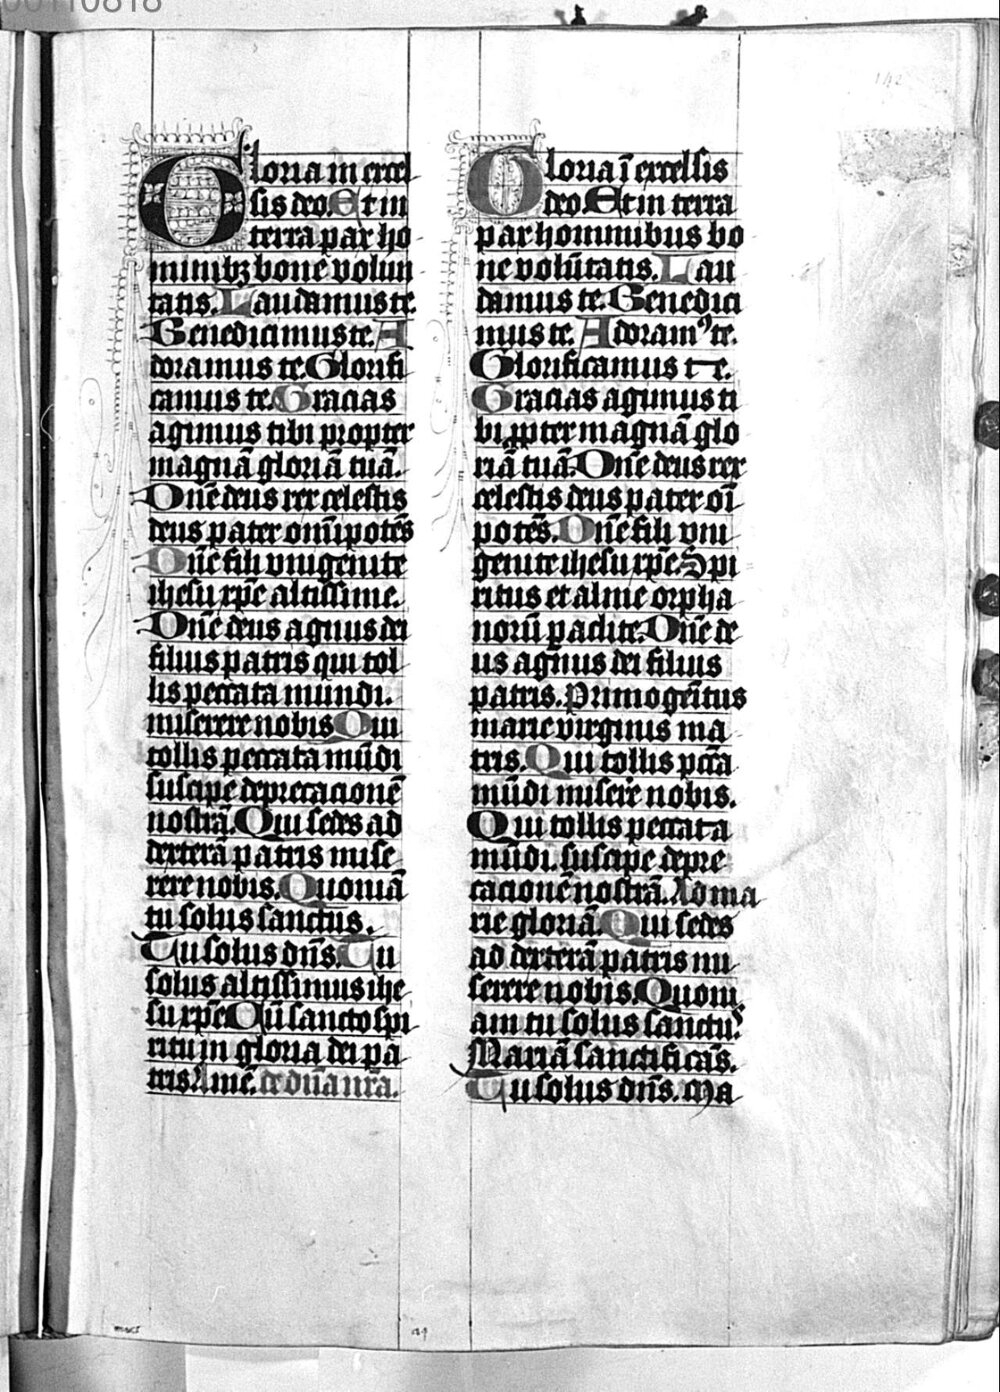 00110818
142
Gloria in excel
sis deo. Et in
terra pax ho
minibꝫ bone volun
tatis. Laudamus te.
Benedicimus te. A
doramus te. Glorifi
camus te. Gracias
agimus tibi propter
magnā gloriā tuā.
Dn̄e deus rex celestis
deus pater om̄ipotēs
Dn̄e fili vnigenite
ihesu xp̄e altissime.
Dn̄e deus agnus dei
filius patris qui tol
lis peccata mundi.
miserere nobis Qui
tollis peccata mūdi
suscipe deprecacionē
nostrā. Qui sedes ad
dexterā patris mise
rere nobis. Quoniā
tu solus sanctus.
Tu solus dn̄s. Tu
solus altissimus ihe
su xp̄e Cū sancto spi
ritu in gloria dei pa
tris Amē. de dn̄a nr̄a.
Gloria ī excelsis
deo Et in terra
pax hominibus bo
ne volūtatis. Lau
damus te. Benedici
mus te. Adoramꝰ te.
Glorificamus te.
Gracias agimus ti
bi ꝓpter magnā glo
riā tuā. Dn̄e deus rex
celestis deus pater oī
potēs. Dn̄e fili vni
genite ihesu xp̄e. Spi
ritus et alme orpha
norū paclite. Dn̄e de
us agnus dei filius
patris. Primogēitus
marie virginis ma
tris. Qui tollis pcc̄a
mūdi misere nobis.
Qui tollis peccata
mūdi. suscipe depre
cacionē nostrā. Ad ma
rie gloriā. Qui sedes
ad dexterā patris mi
serere nobis. Quoni
am tu solus sanctuꝰ
Mariā sanctificās.
Tu solus dn̄s. Ma